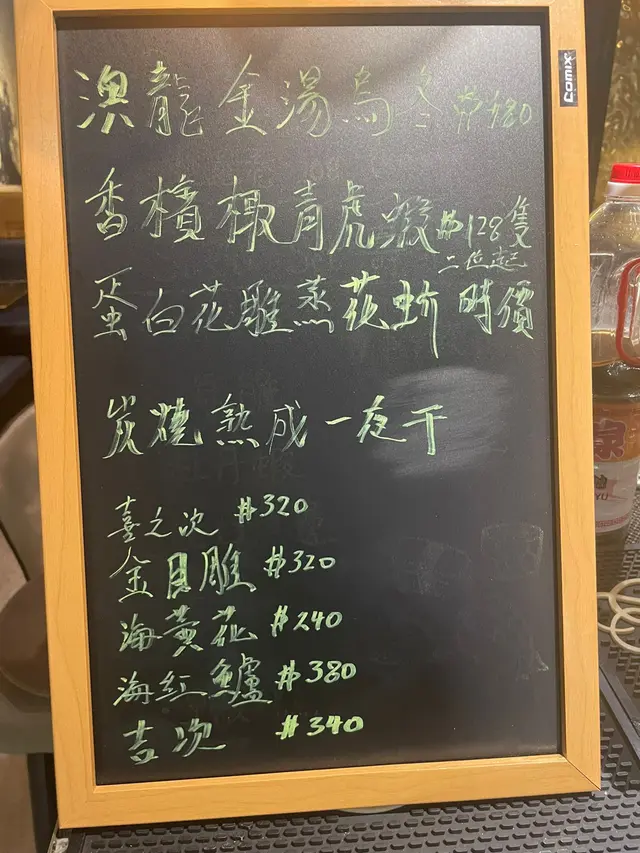 COMIX
澳龍金湯烏冬 $480
香檳椒青虎蝦 $128隻
二位起
蛋白花雕蒸花蚧 時價
炭燒熟成一夜干
喜之次 $320
金目雕 $320
海黃花 $240
海紅鱸 $380
吉次 $340